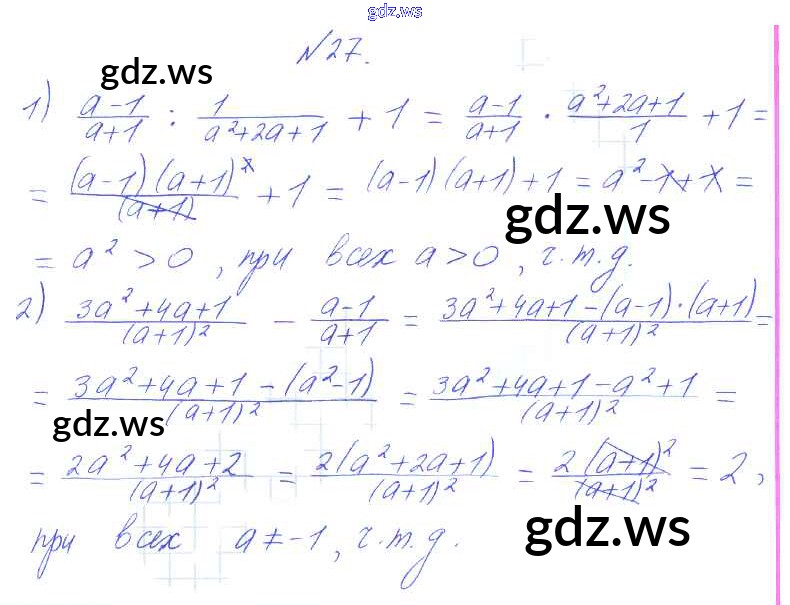 gdz.ws
№27.
gdz.ws
1) (a-1)/(a+1) : 1/(a²+2a+1) + 1 = (a-1)/(a+1) · (a²+2a+1)/1 + 1 =
= (a-1)(a+1)²/(a+1) + 1 = (a-1)(a+1)+1 = a²-1+1 =
gdz.ws
= a² > 0, при всех a>0, ч.т.д.
2) (3a²+4a+1)/(a+1)² - (a-1)/(a+1) = (3a²+4a+1-(a-1)·(a+1))/(a+1)² =
= (3a²+4a+1-(a²-1))/(a+1)² = (3a²+4a+1-a²+1)/(a+1)² =
gdz.ws
= (2a²+4a+2)/(a+1)² = 2(a²+2a+1)/(a+1)² = 2(a+1)²/(a+1)² = 2,
gdz.ws
при всех a≠-1, ч.т.д.